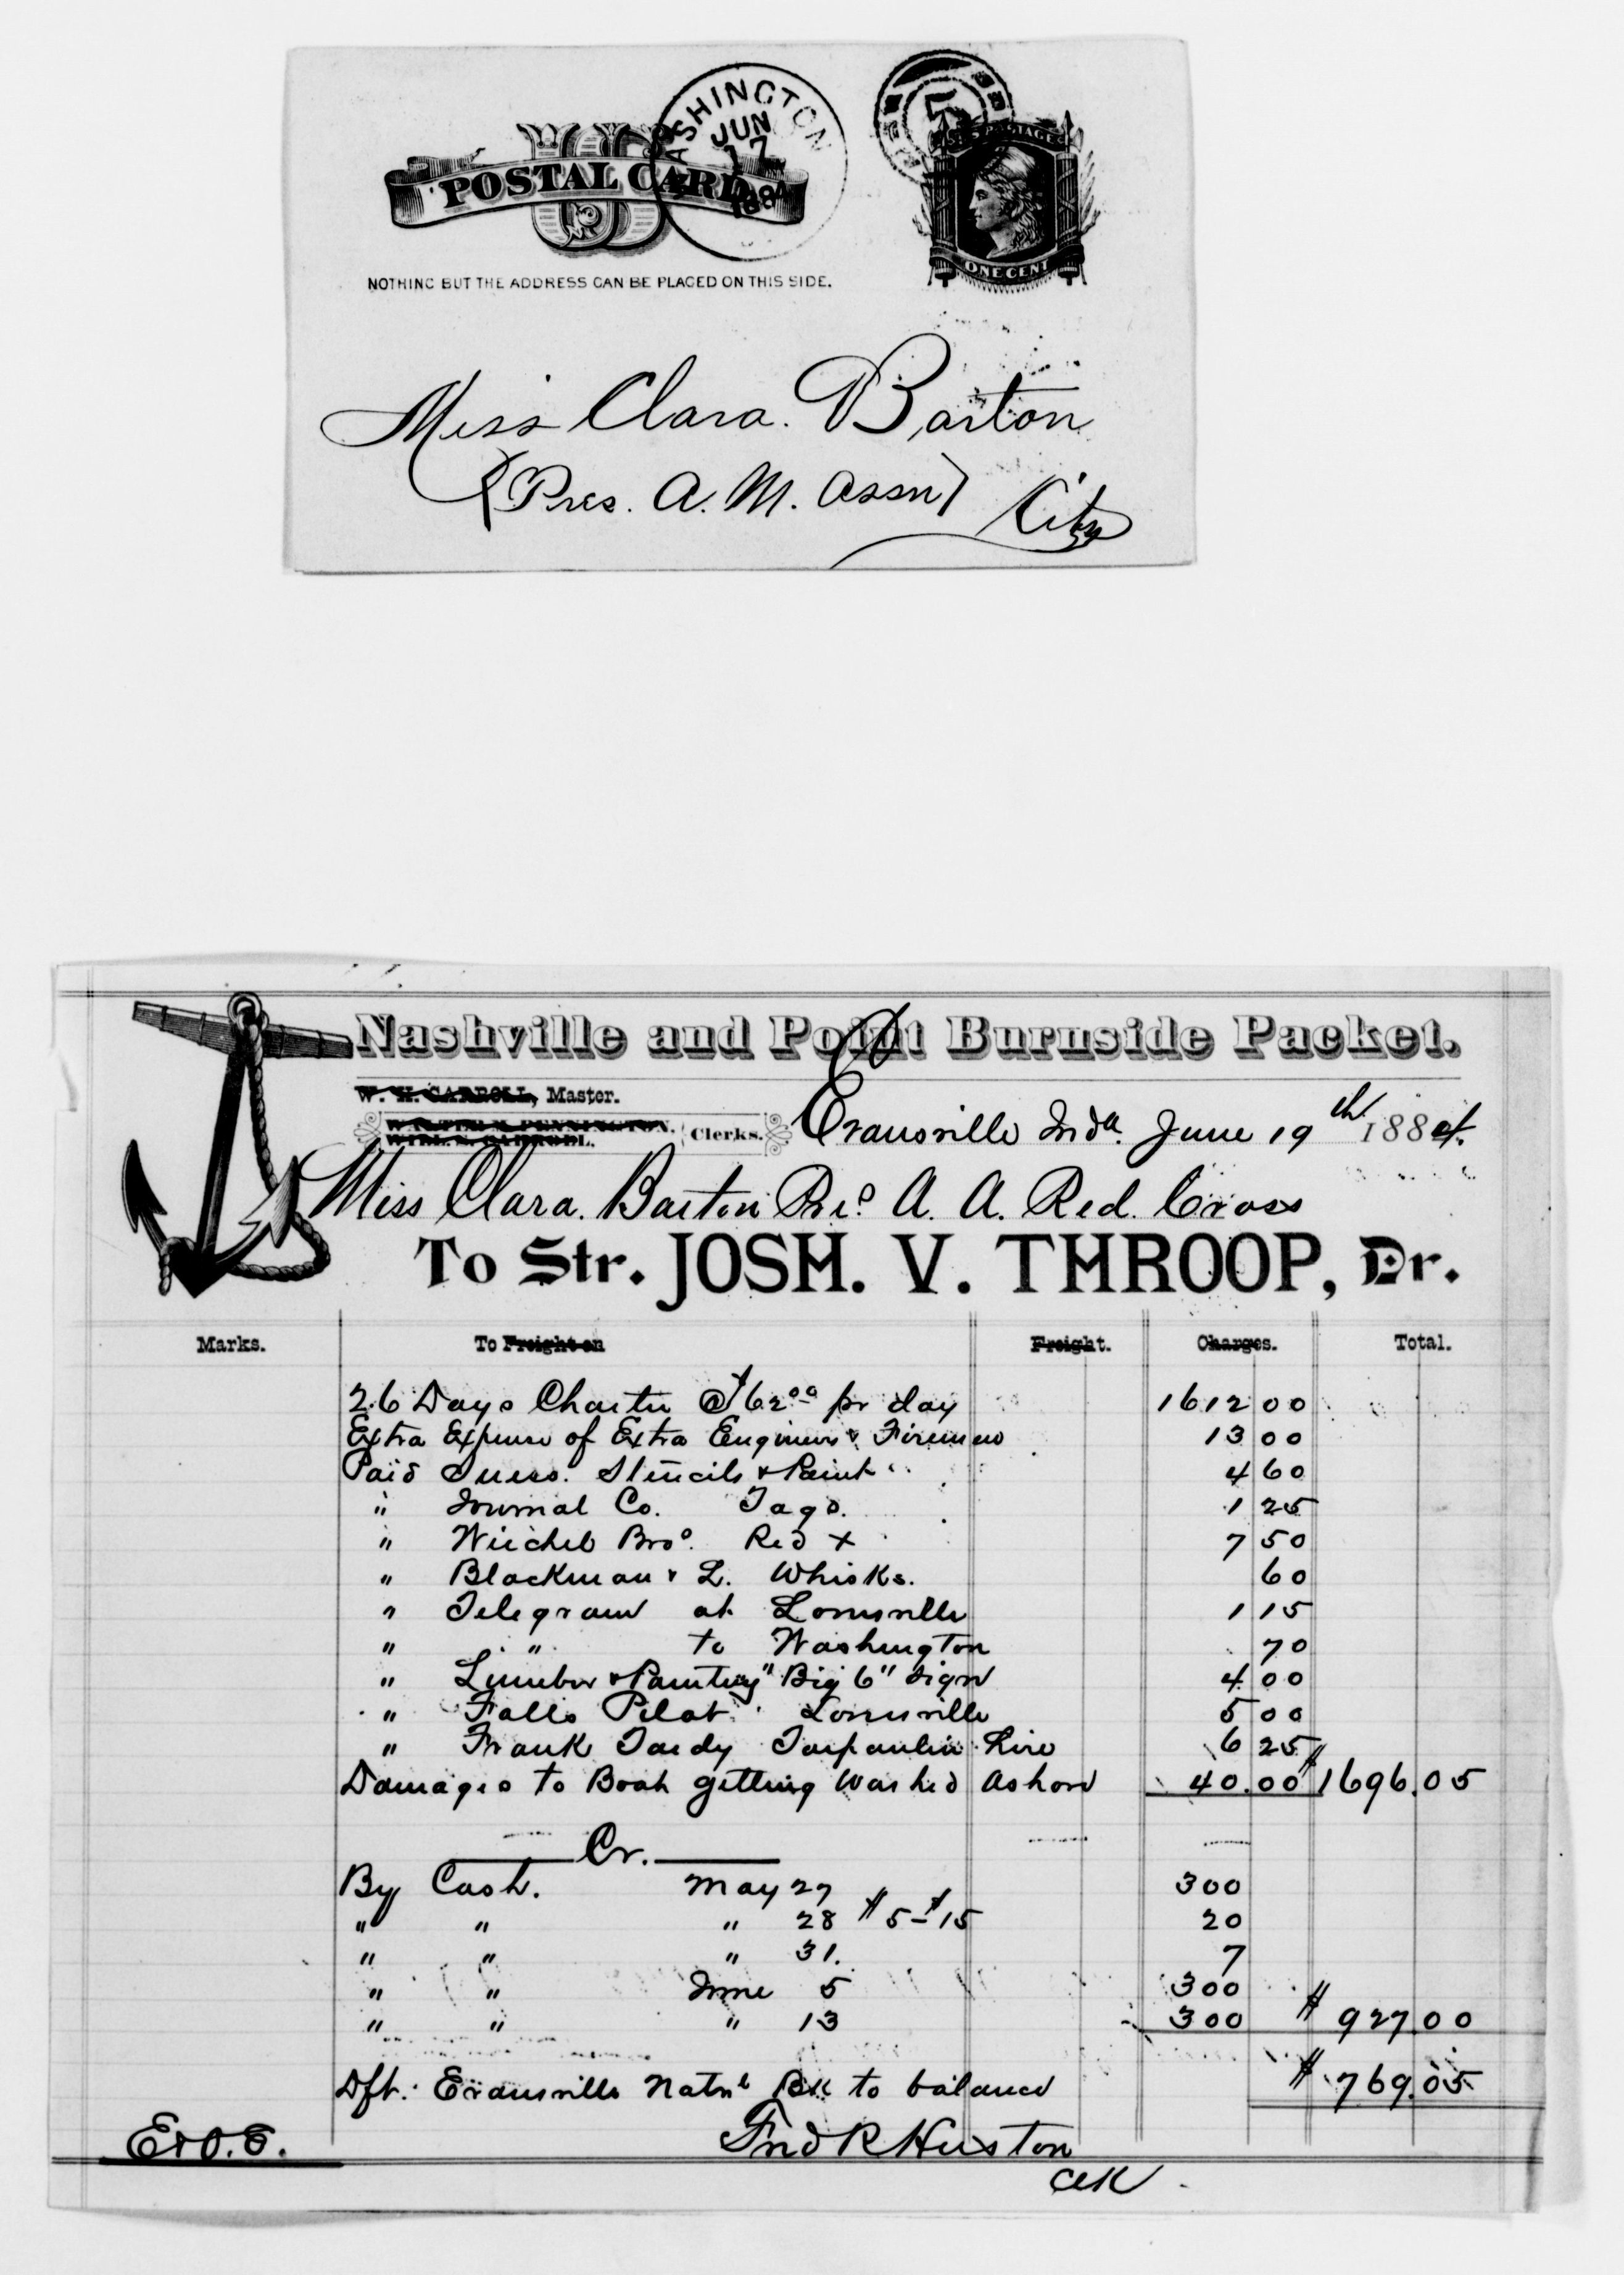 US
POSTAL CARD
WASHINGTON
JUN
17
1884
U.S. POSTAGE
ONE CENT
NOTHING BUT THE ADDRESS CAN BE PLACED ON THIS SIDE.
Miss Clara. Barton
(Pres. A. M. Assn) City
Nashville and Point Burnside Packet.
W. H. CARROLL, Master.
WILL S. CARROLL. Clerks.
Evansville Inda. June 19th 1884.
Miss Clara. Barton Pres. A. A. Red. Cross
To Str. JOSH. V. THROOP, Dr.
Marks. To Freight on Freight. Charges. Total.
26 Days Charter @ $62.00 pr day 1612 00
Extra Expense of Extra Engineer & Firemen 13 00
Paid Stencils & Paint 4 60
" Journal Co. Tags. 1 25
" Bros. Red + 7 50
" Blackman & L. Whisks. 60
" Telegram at Louisville 1 15
" " to Washington 70
" Lumber & Painting "Big 6" sign 4 00
" Falls Pilot Louisville 5 00
" Frank Tardy Tarpaulin hire 6 25
Damages to Boat getting Washed Ashore 40.00 $1696.05
Cr.
By Cash. May 27 300
" " " 28 $5-$15 20
" " " 31. 7
" " June 5 300
" " " 13 300 $927.00
Dft. Evansville Natnl Bk to balance $769.05
E&O.E. Fred R Huston
Clk